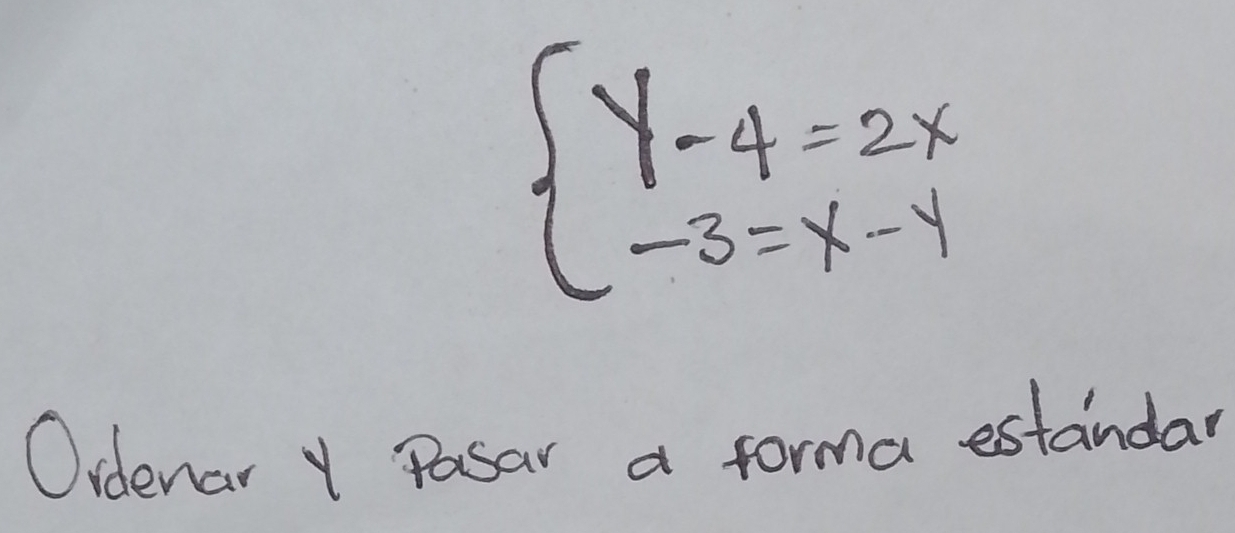 Y - 4 = 2x
-3 = x - y
Ordenar y Pasar a forma estándar